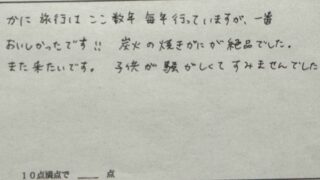 かに旅行はここ数年毎年行っていますが、一番
おいしかったです!! 炭火の焼きがにが絶品でした。
また来たいです。 子供が騒がしくてすみませんでした
10点満点で ____ 点